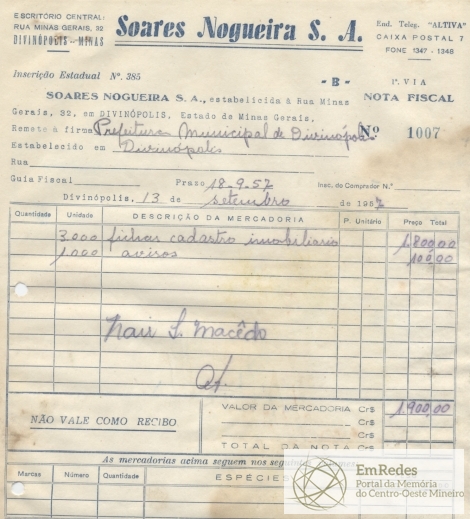 ESCRITÓRIO CENTRAL:
RUA MINAS GERAIS, 32
DIVINÓPOLIS - MINAS
Soares Nogueira S. A.
End. Teleg. "ALTIVA"
CAIXA POSTAL 7
FONE 1347 - 1348
Inscrição Estadual Nº. 385
- B -
1ª. VIA
SOARES NOGUEIRA S. A., estabelicida à Rua Minas
NOTA FISCAL
Gerais, 32, em DIVINÓPOLIS, Estado de Minas Gerais,
Remete à firma Prefeitura Municipal de Divinópolis
Nº 1007
Estabelecido em Divinópolis
Rua
Guia Fiscal Prazo 18-9-57 Insc. do Comprador N.º
Divinópolis, 13 de setembro de 1957
Quantidade Unidade DESCRIÇÃO DA MERCADORIA P. Unitário Preço Total
3.000 fichas cadastro imobiliário 1.800,00
1.000 avisos 100,00
Nair S. Macêdo
NÃO VALE COMO RECIBO
VALOR DA MERCADORIA Cr$ 1.900,00
Cr$
Cr$
TOTAL DA NOTA Cr$
As mercadorias acima seguem nos
Marcas Número Quantidade ESPÉCIES
EmRedes
Portal da Memória
do Centro-Oeste Mineiro